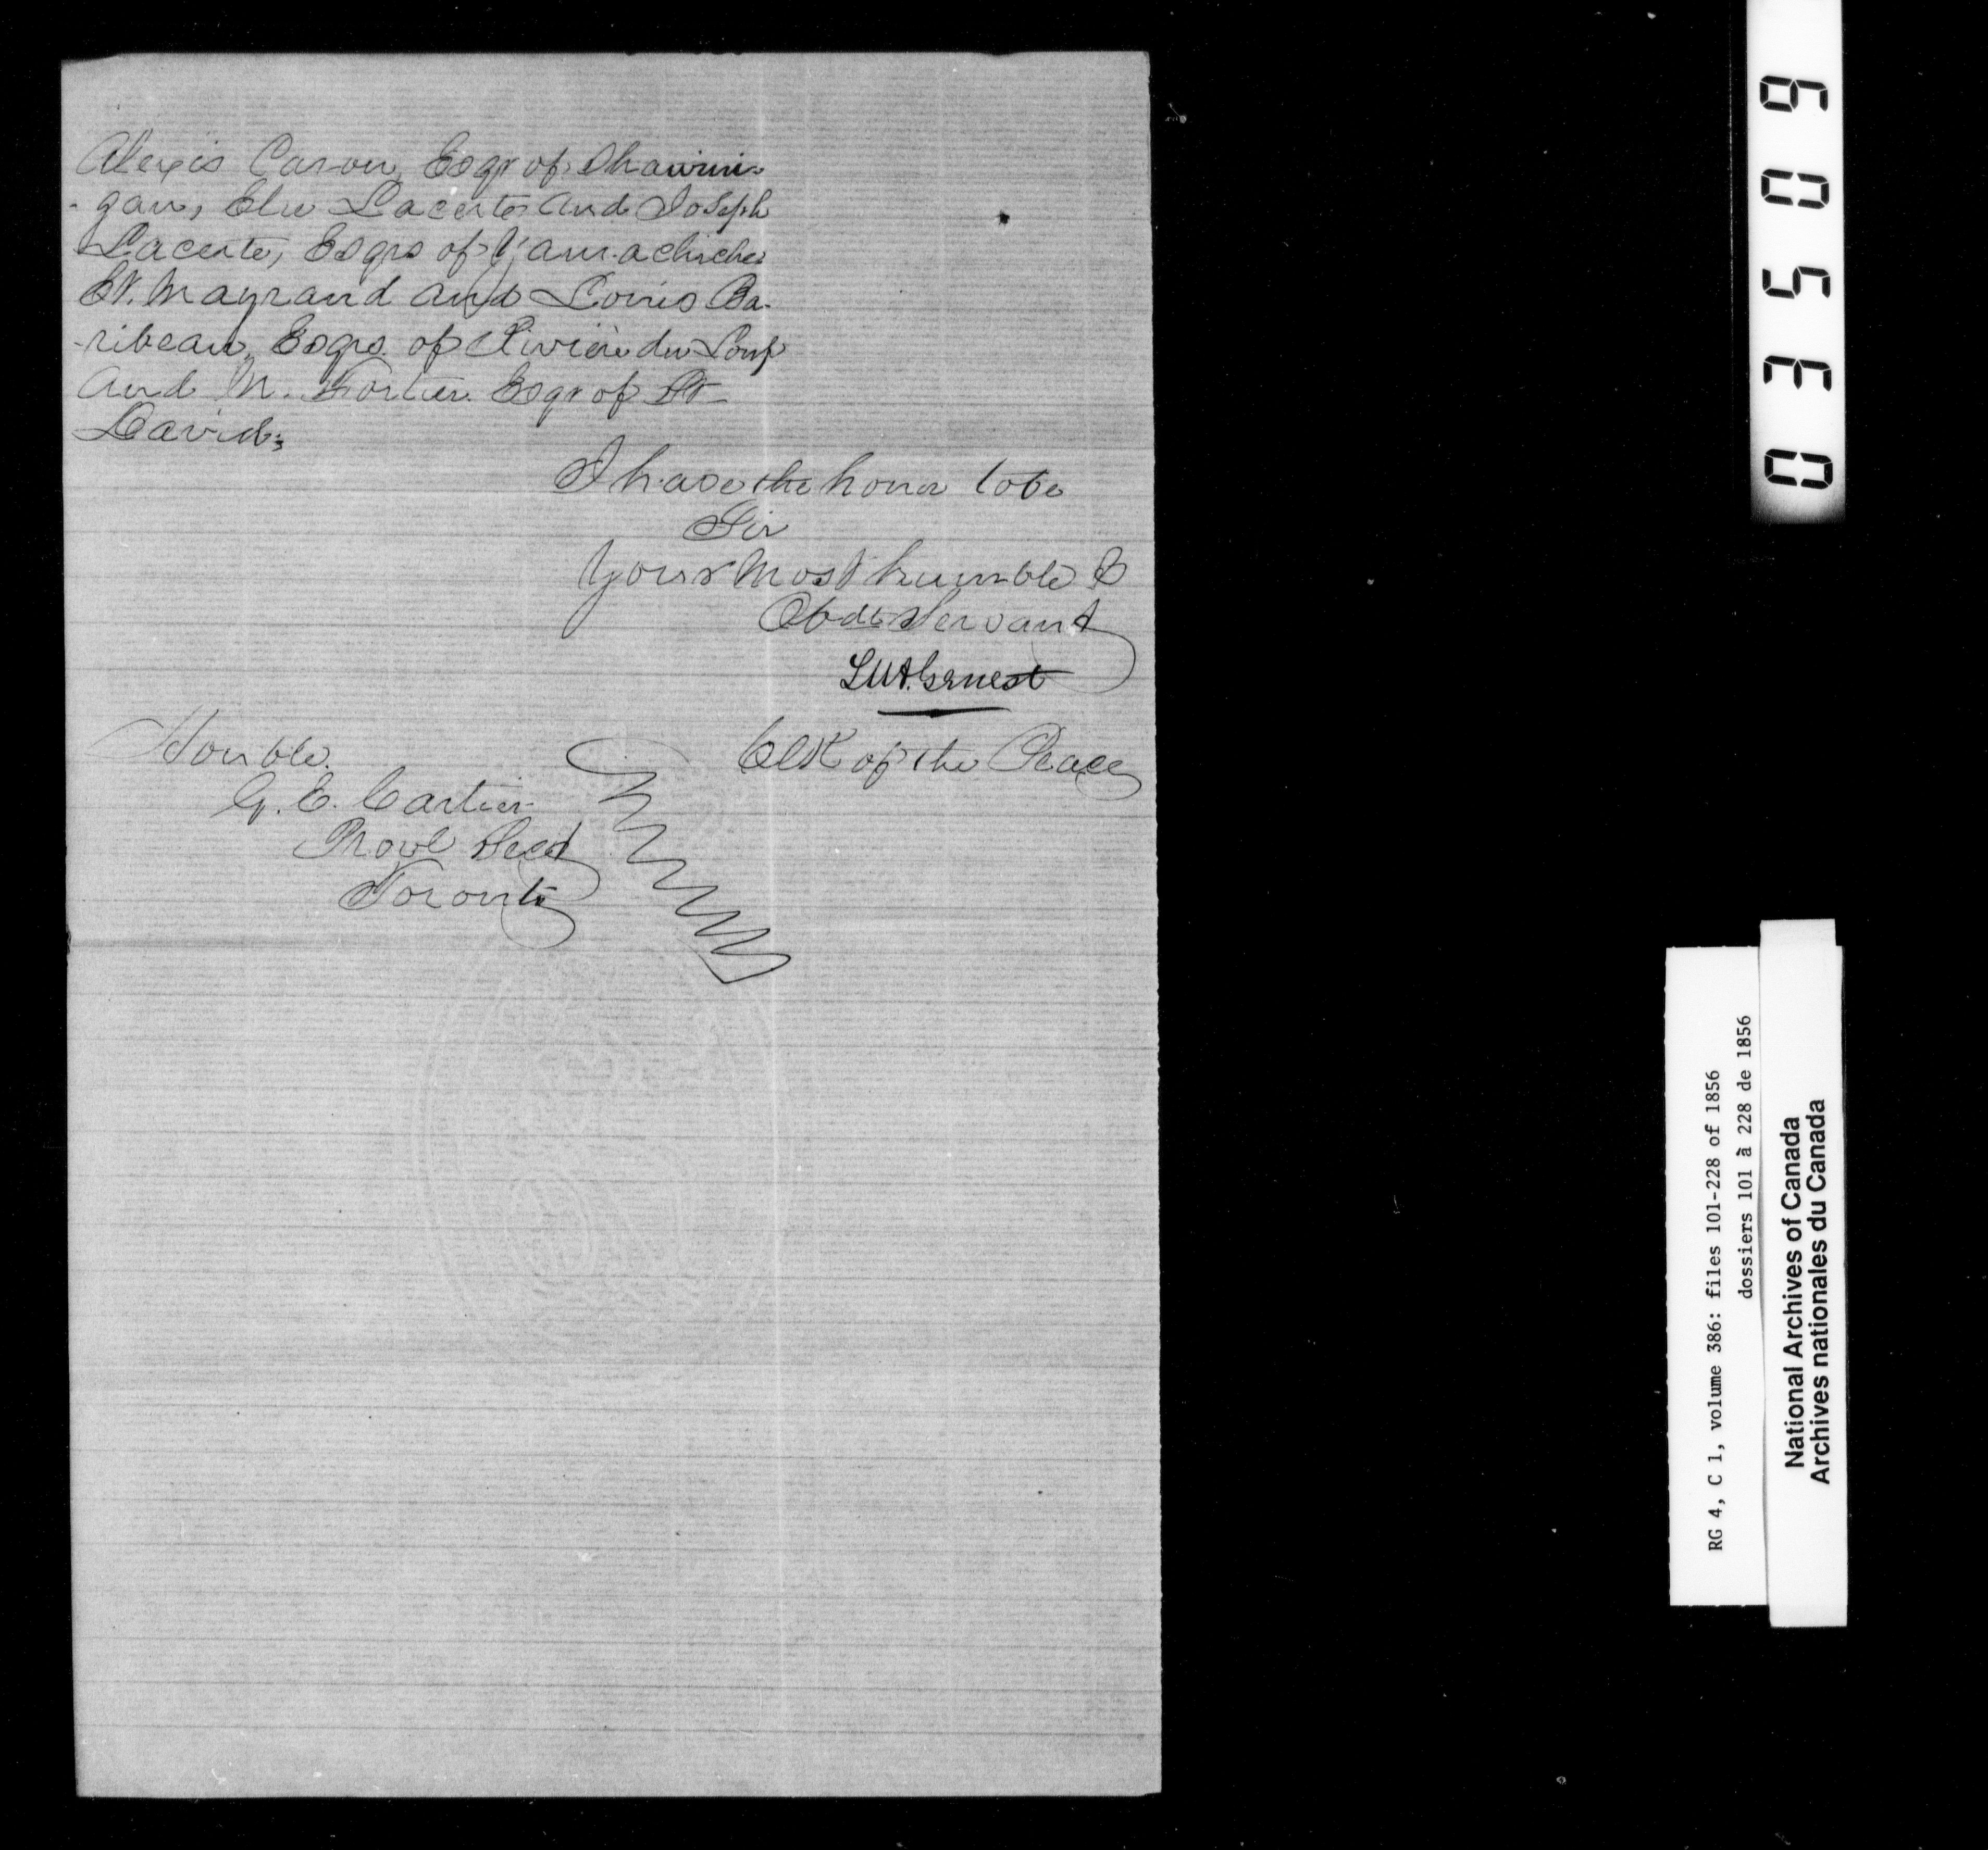 Alexis Caron, Esqr of Shawini-
-gan, Elie Lacerte and Joseph
Lacerte, Esqrs of Yamachiche
Et. Mayrand and Louis Ba-
-ribeau, Esqrs. of Rivière du Loup
and M. Fortier. Esqr of St
David;
I have the honor to be
Sir
Your Most humble &
Obdt Servant
Clk of the Peace
Honble.
G. E. Cartier
Provl Secy
Toronto
03509
RG 4, C 1, volume 386: files 101-228 of 1856
dossiers 101 à 228 de 1856
National Archives of Canada
Archives nationales du Canada